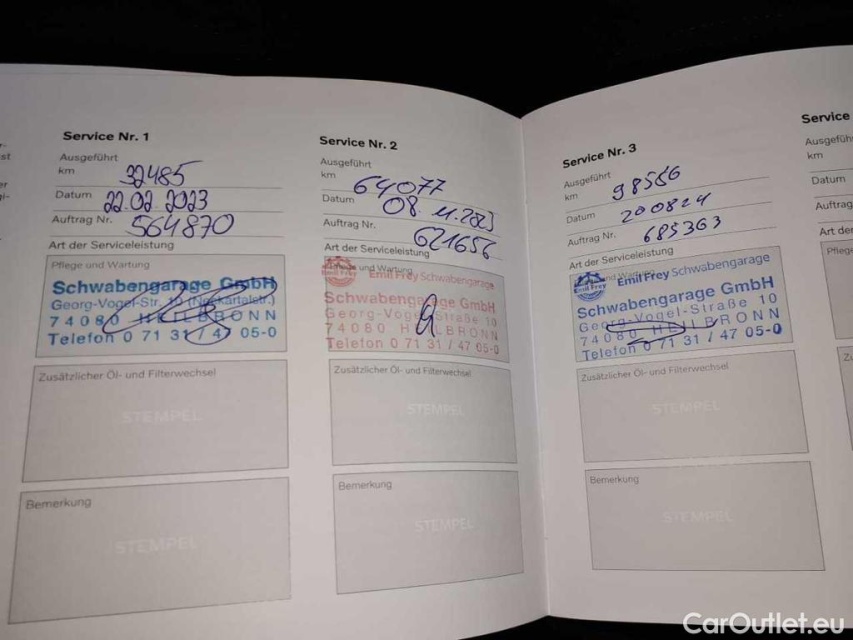 Service Nr. 1
Ausgeführt
km 32485
Datum 22.02.2023
Auftrag Nr. 564870
Art der Serviceleistung
Pflege und Wartung
Schwabengarage GmbH
Georg-Vogel-Str. 10 (Neckartalstr.)
74080 HEILBRONN
Telefon 0 71 31 / 47 05-0
Zusätzlicher Öl- und Filterwechsel
STEMPEL
Bemerkung
STEMPEL
Service Nr. 2
Ausgeführt
km 64077
Datum 08.11.2023
Auftrag Nr. 621656
Art der Serviceleistung
Pflege und Wartung
Emil Frey Schwabengarage
Schwabengarage GmbH
Georg-Vogel-Straße 10
74080 HEILBRONN
Telefon 0 71 31 / 47 05-0
Zusätzlicher Öl- und Filterwechsel
STEMPEL
Bemerkung
STEMPEL
Service Nr. 3
Ausgeführt
km 98566
Datum 200824
Auftrag Nr. 685363
Art der Serviceleistung
Pflege und Wartung
Emil Frey
Emil Frey Schwabengarage
Schwabengarage GmbH
Georg-Vogel-Straße 10
74080 HEILBRONN
Telefon 0 71 31 / 47 05-0
Zusätzlicher Öl- und Filterwechsel
STEMPEL
Bemerkung
STEMPEL
Service
Ausgeführt
km
Datum
Auftrag
Art der
Pflege
CarOutlet.eu